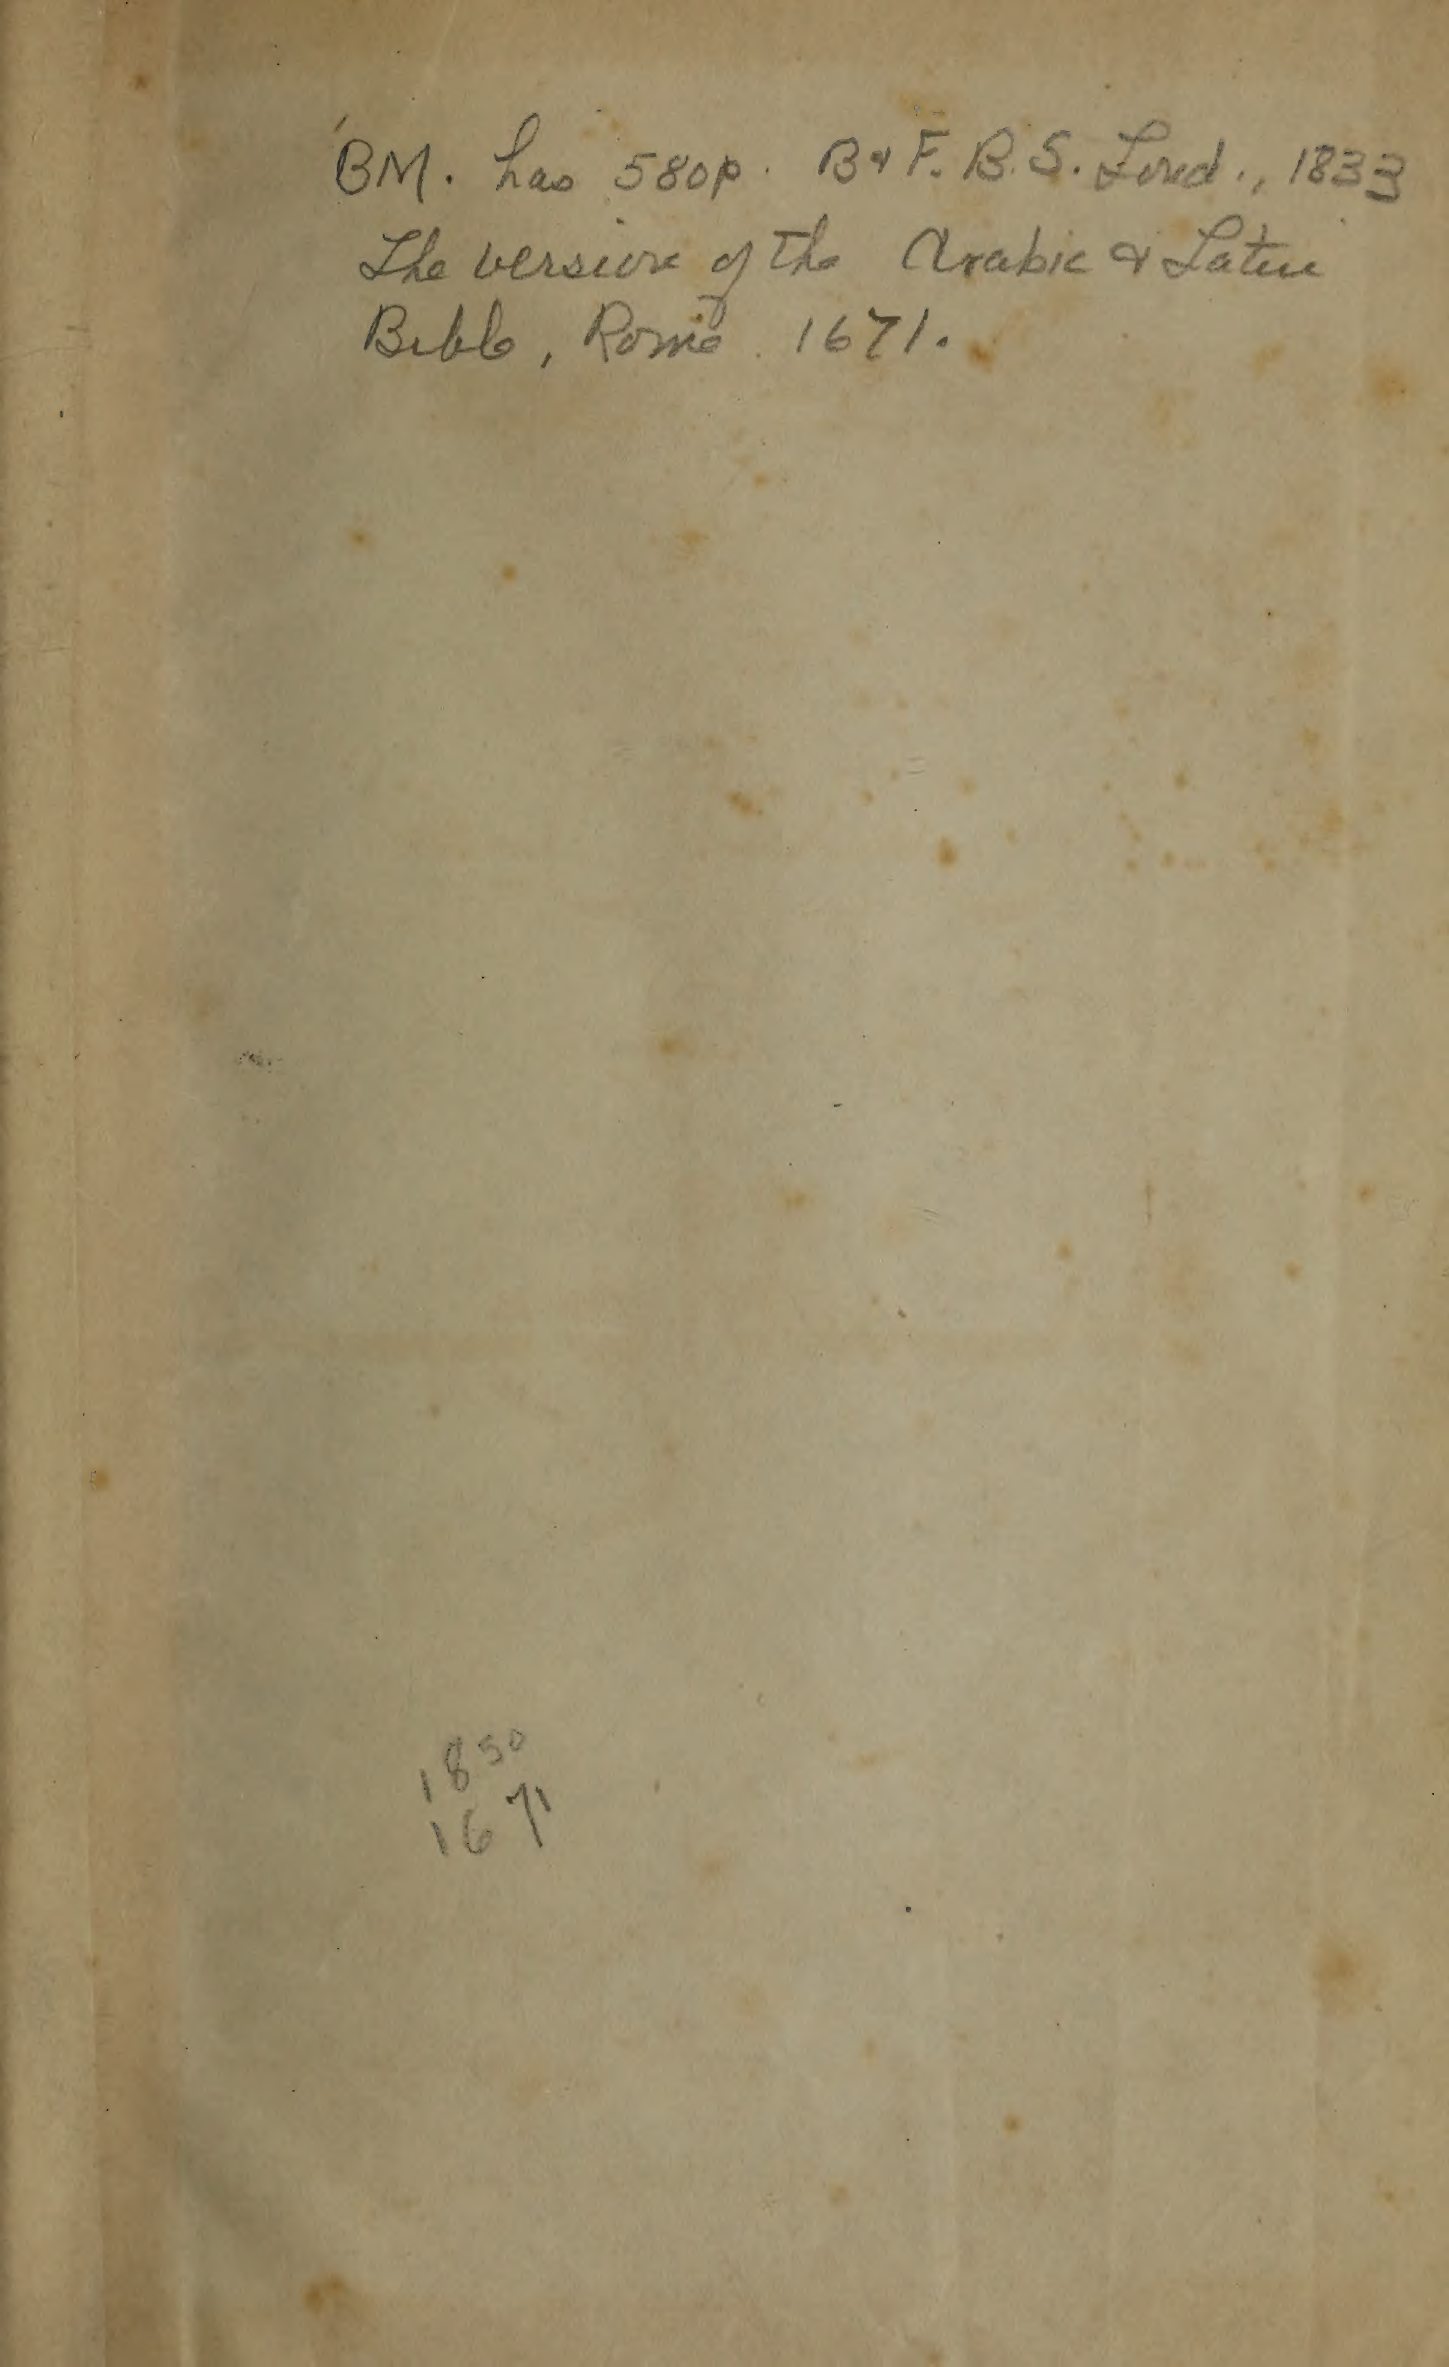 BM. has 580p. B & F. B. S. Lond., 1833
The version of the Arabic & Latin
Bible, Rome. 1671.
1850
1671